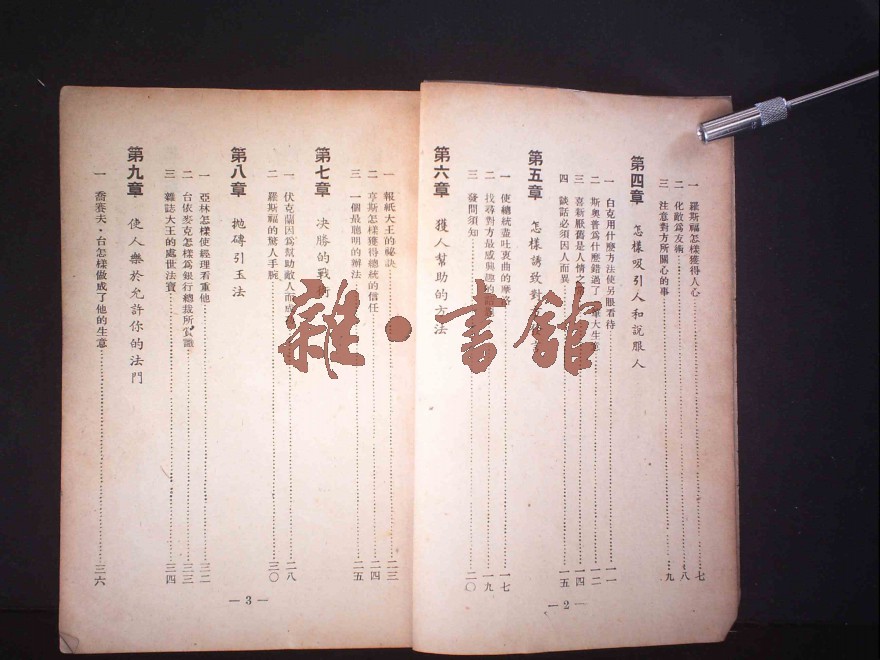 一 羅斯福怎樣獲得人心……七
二 化敵為友術……八
三 注意對方所關心的事……九
第四章 怎樣吸引人和說服人
一 白克用什麼方法使另眼看待……一一
二 斯奧普為什麼錯過了 大生意……一二
三 喜新厭舊是人情之……一四
四 談話必須因人而異……一五
第五章 怎樣誘致對
一 使總統盡吐衷曲的……一七
二 找尋對方最感興趣的……一九
三 發問須知……二〇
第六章 獲人幫助的方法
— 2 —
一 報紙大王的祕訣……二三
二 亨斯怎樣獲得總統的信任……二四
三 一個最聰明的辦法……二五
第七章 決勝的戰術
一 伏克蘭因為幫助敵人而成……二八
二 羅斯福的驚人手腕……三〇
第八章 拋磚引玉法
一 亞林怎樣使經理看重他……三二
二 台依麥克怎樣為銀行總裁所賞識……三三
三 雜誌大王的處世法寶……三四
第九章 使人樂於允許你的法門
一 喬賽夫·台怎樣做成了他的生意……三六
— 3 —
雜·書館